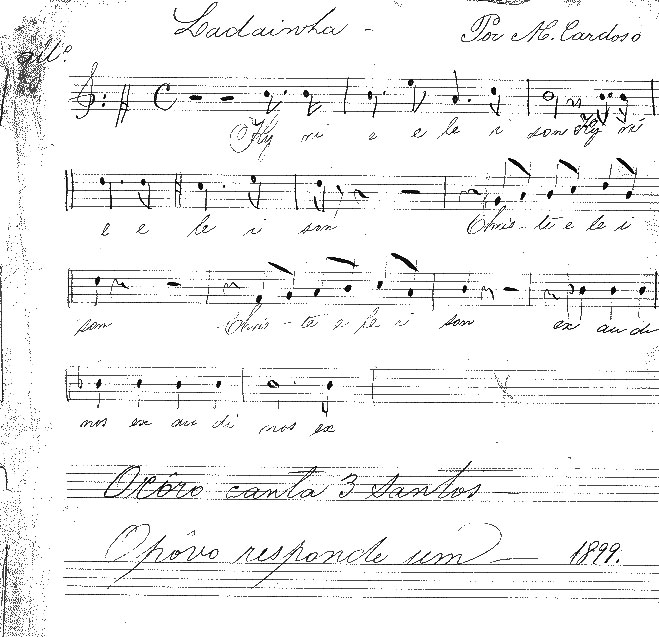 Ladainha - Por M. Cardoso
All.º
Ky ri e e le i son Ky ri
e e le i son Chris - te e le i
son Chris - te e le i son ex au di
nos ex au di nos ex
O côro canta 3 Santos
O pôvo responde um — 1899.